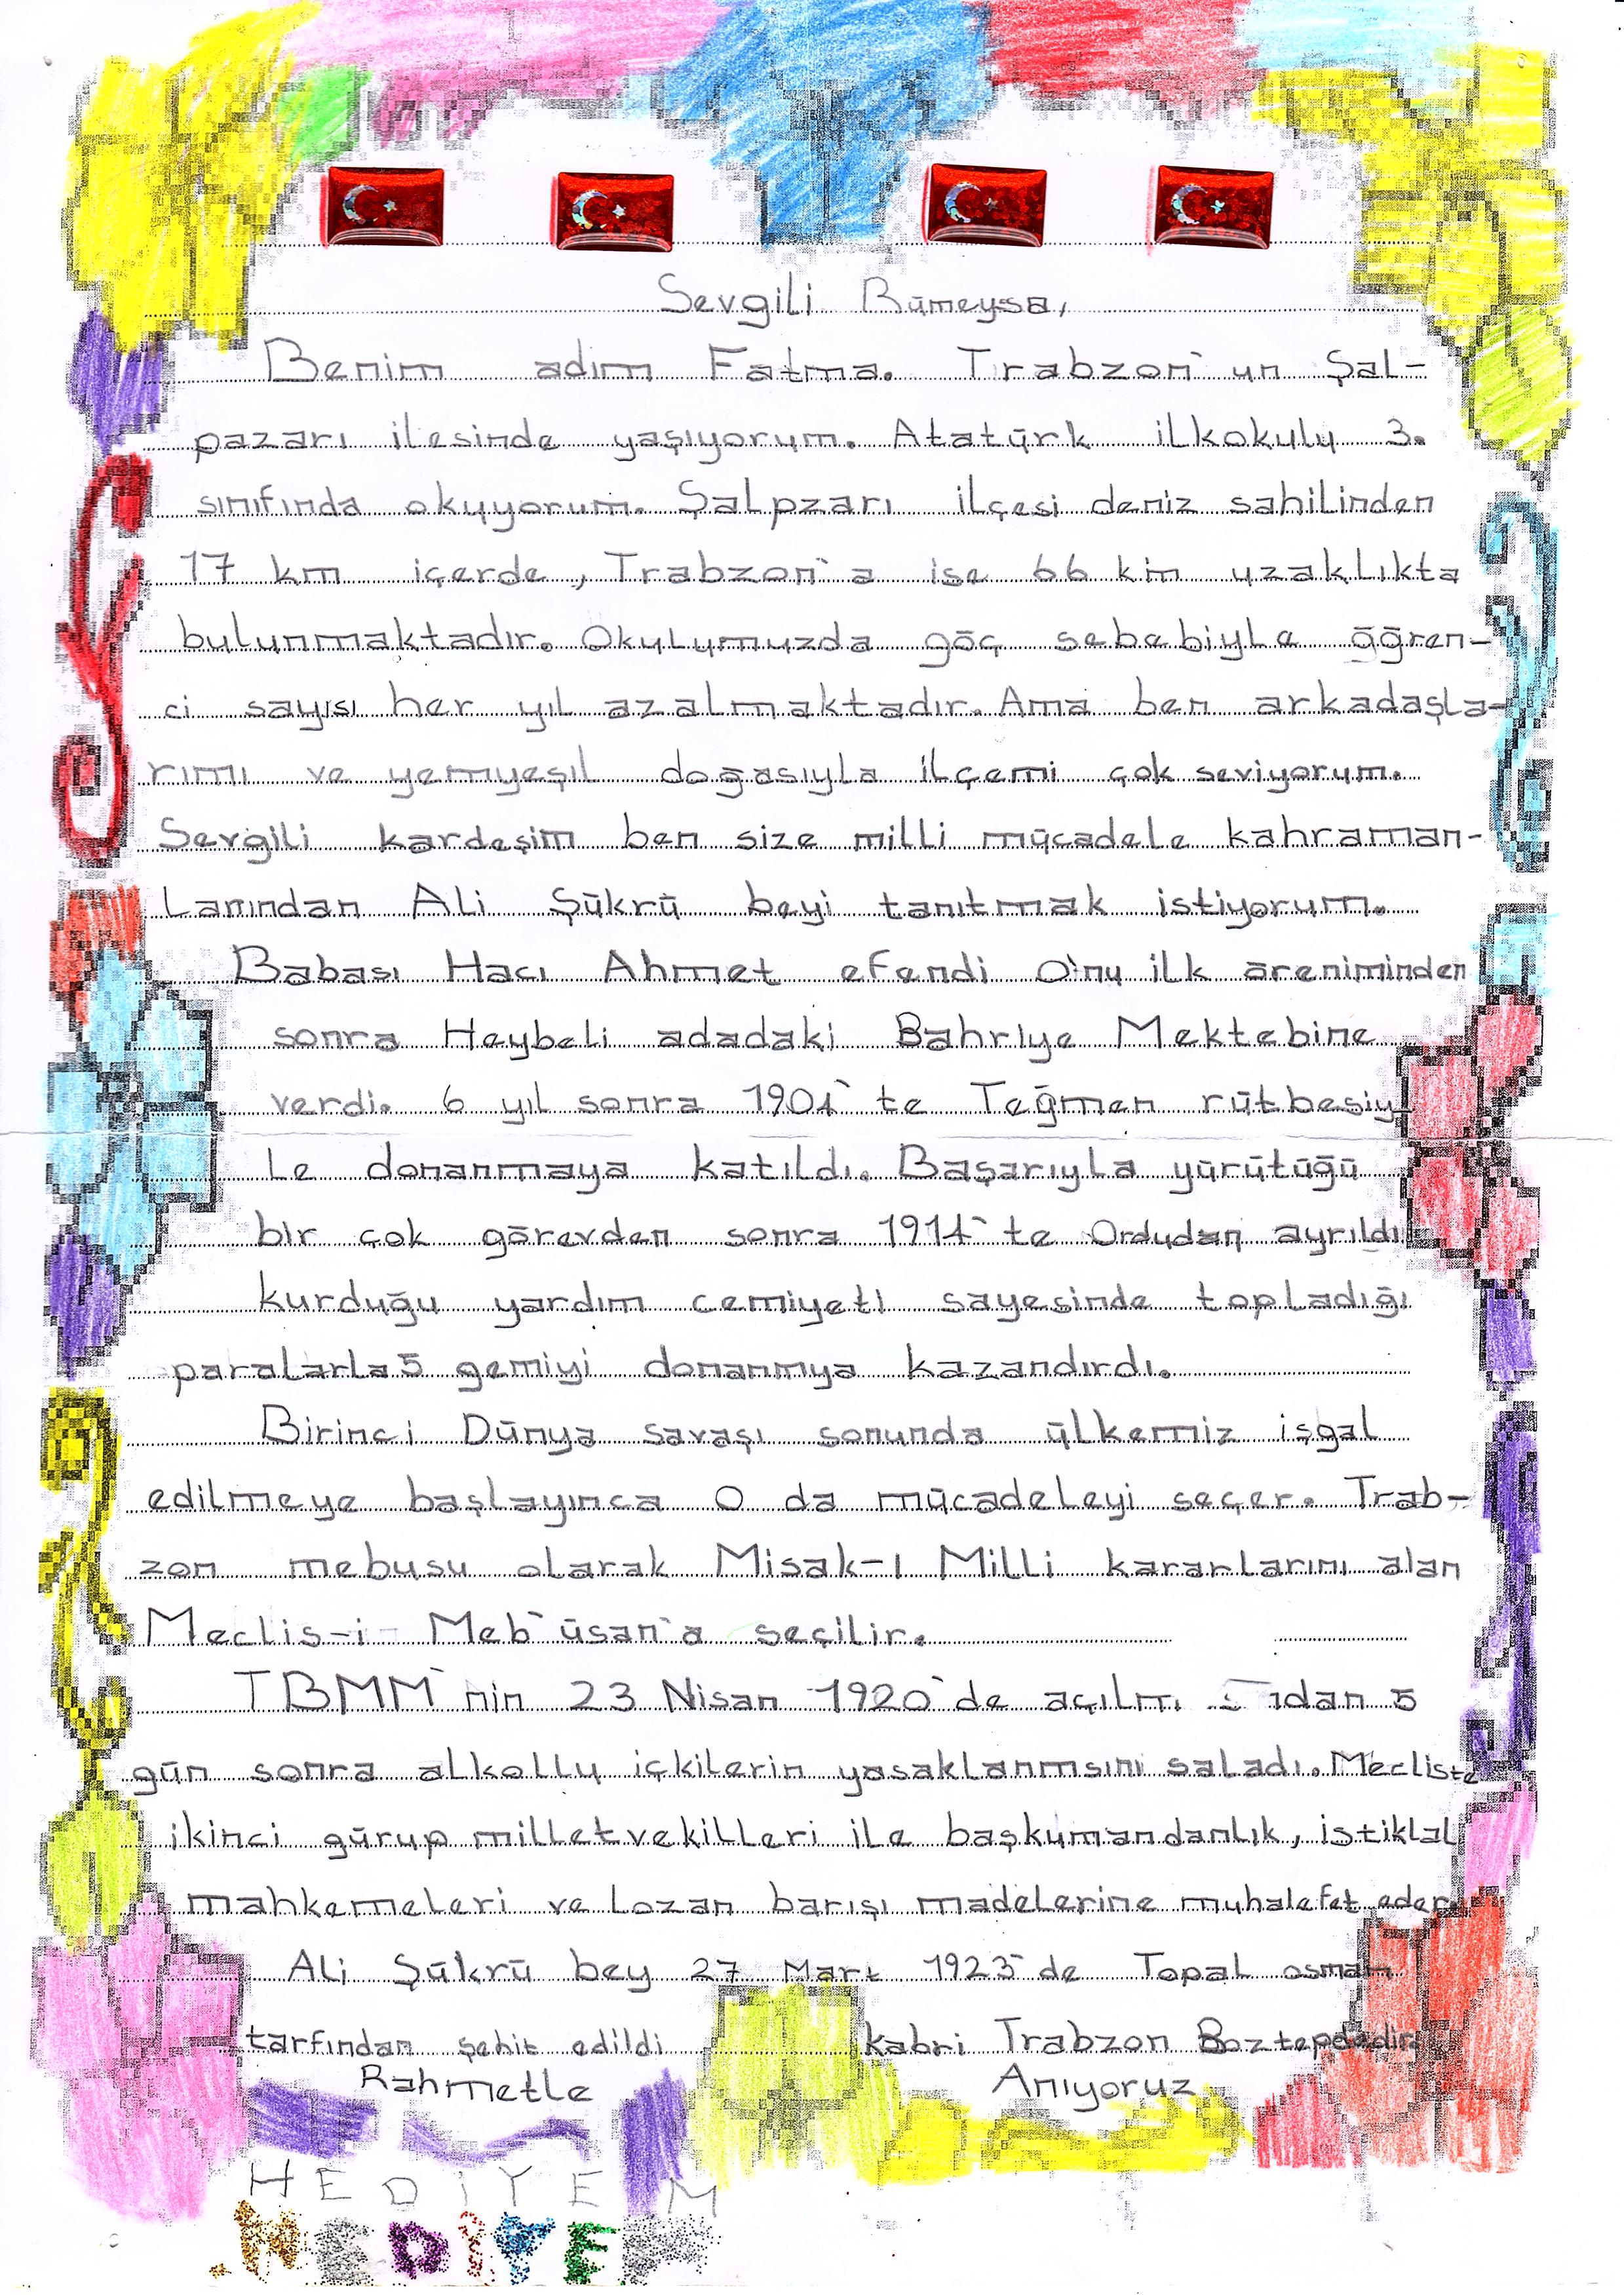 Sevgili Rümeysa,
Benim adım Fatma. Trabzon'un Şal-
pazarı ilesinde yaşıyorum. Atatürk ilkokulu 3.
sınıfında okuyorum. Şalpzarı ilçesi deniz sahilinden
17 km içerde, Trabzon'a ise 66 km uzaklıkta
bulunmaktadır. Okulumuzda göç sebebiyle öğren-
ci sayısı her yıl azalmaktadır. Ama ben arkadaşla-
rımı ve yemyeşil doğasıyla ilçemi çok seviyorum.
Sevgili kardeşim ben size milli mücadele kahraman-
larından Ali Şükrü beyi tanıtmak istiyorum.
Babası Hacı Ahmet efendi O'nu ilk
sonra Heybeli adadaki Bahrıye Mektebine
verdi. 6 yıl sonra 1901'te Teğmen rütbesiy
le donanmaya katıldı. Başarıyla yürütüğü
bir çok görevden sonra 1914'te Ordudan ayrıldı
kurduğu yardım cemiyeti sayesinde topladığı
paralarla 5 gemiyi donanmya kazandırdı.
Birinci Dünya savaşı sonunda ülkemiz işgal
edilmeye başlayınca O da mücadeleyi seçer. Trab-
zon mebusu olarak Misak-ı Milli kararlarını alan
Meclis-i Meb'üsan'a seçilir.
TBMM'nin 23 Nisan 1920'de 5
gün sonra alkollu içkilerin yasaklanmsını saladı. Mecliste
ikinci gürup milletvekilleri ile başkumandanlık, istiklal
mahkemeleri ve Lozan barışı madelerine muhalefet eder.
Ali Şükrü bey 27 Mart 1923'de Topal osman
tarfından şehit edildi kabri Trabzon Boztepdedir.
Rahmetle Anıyoruz
HEDİYEM
HEDİYEM